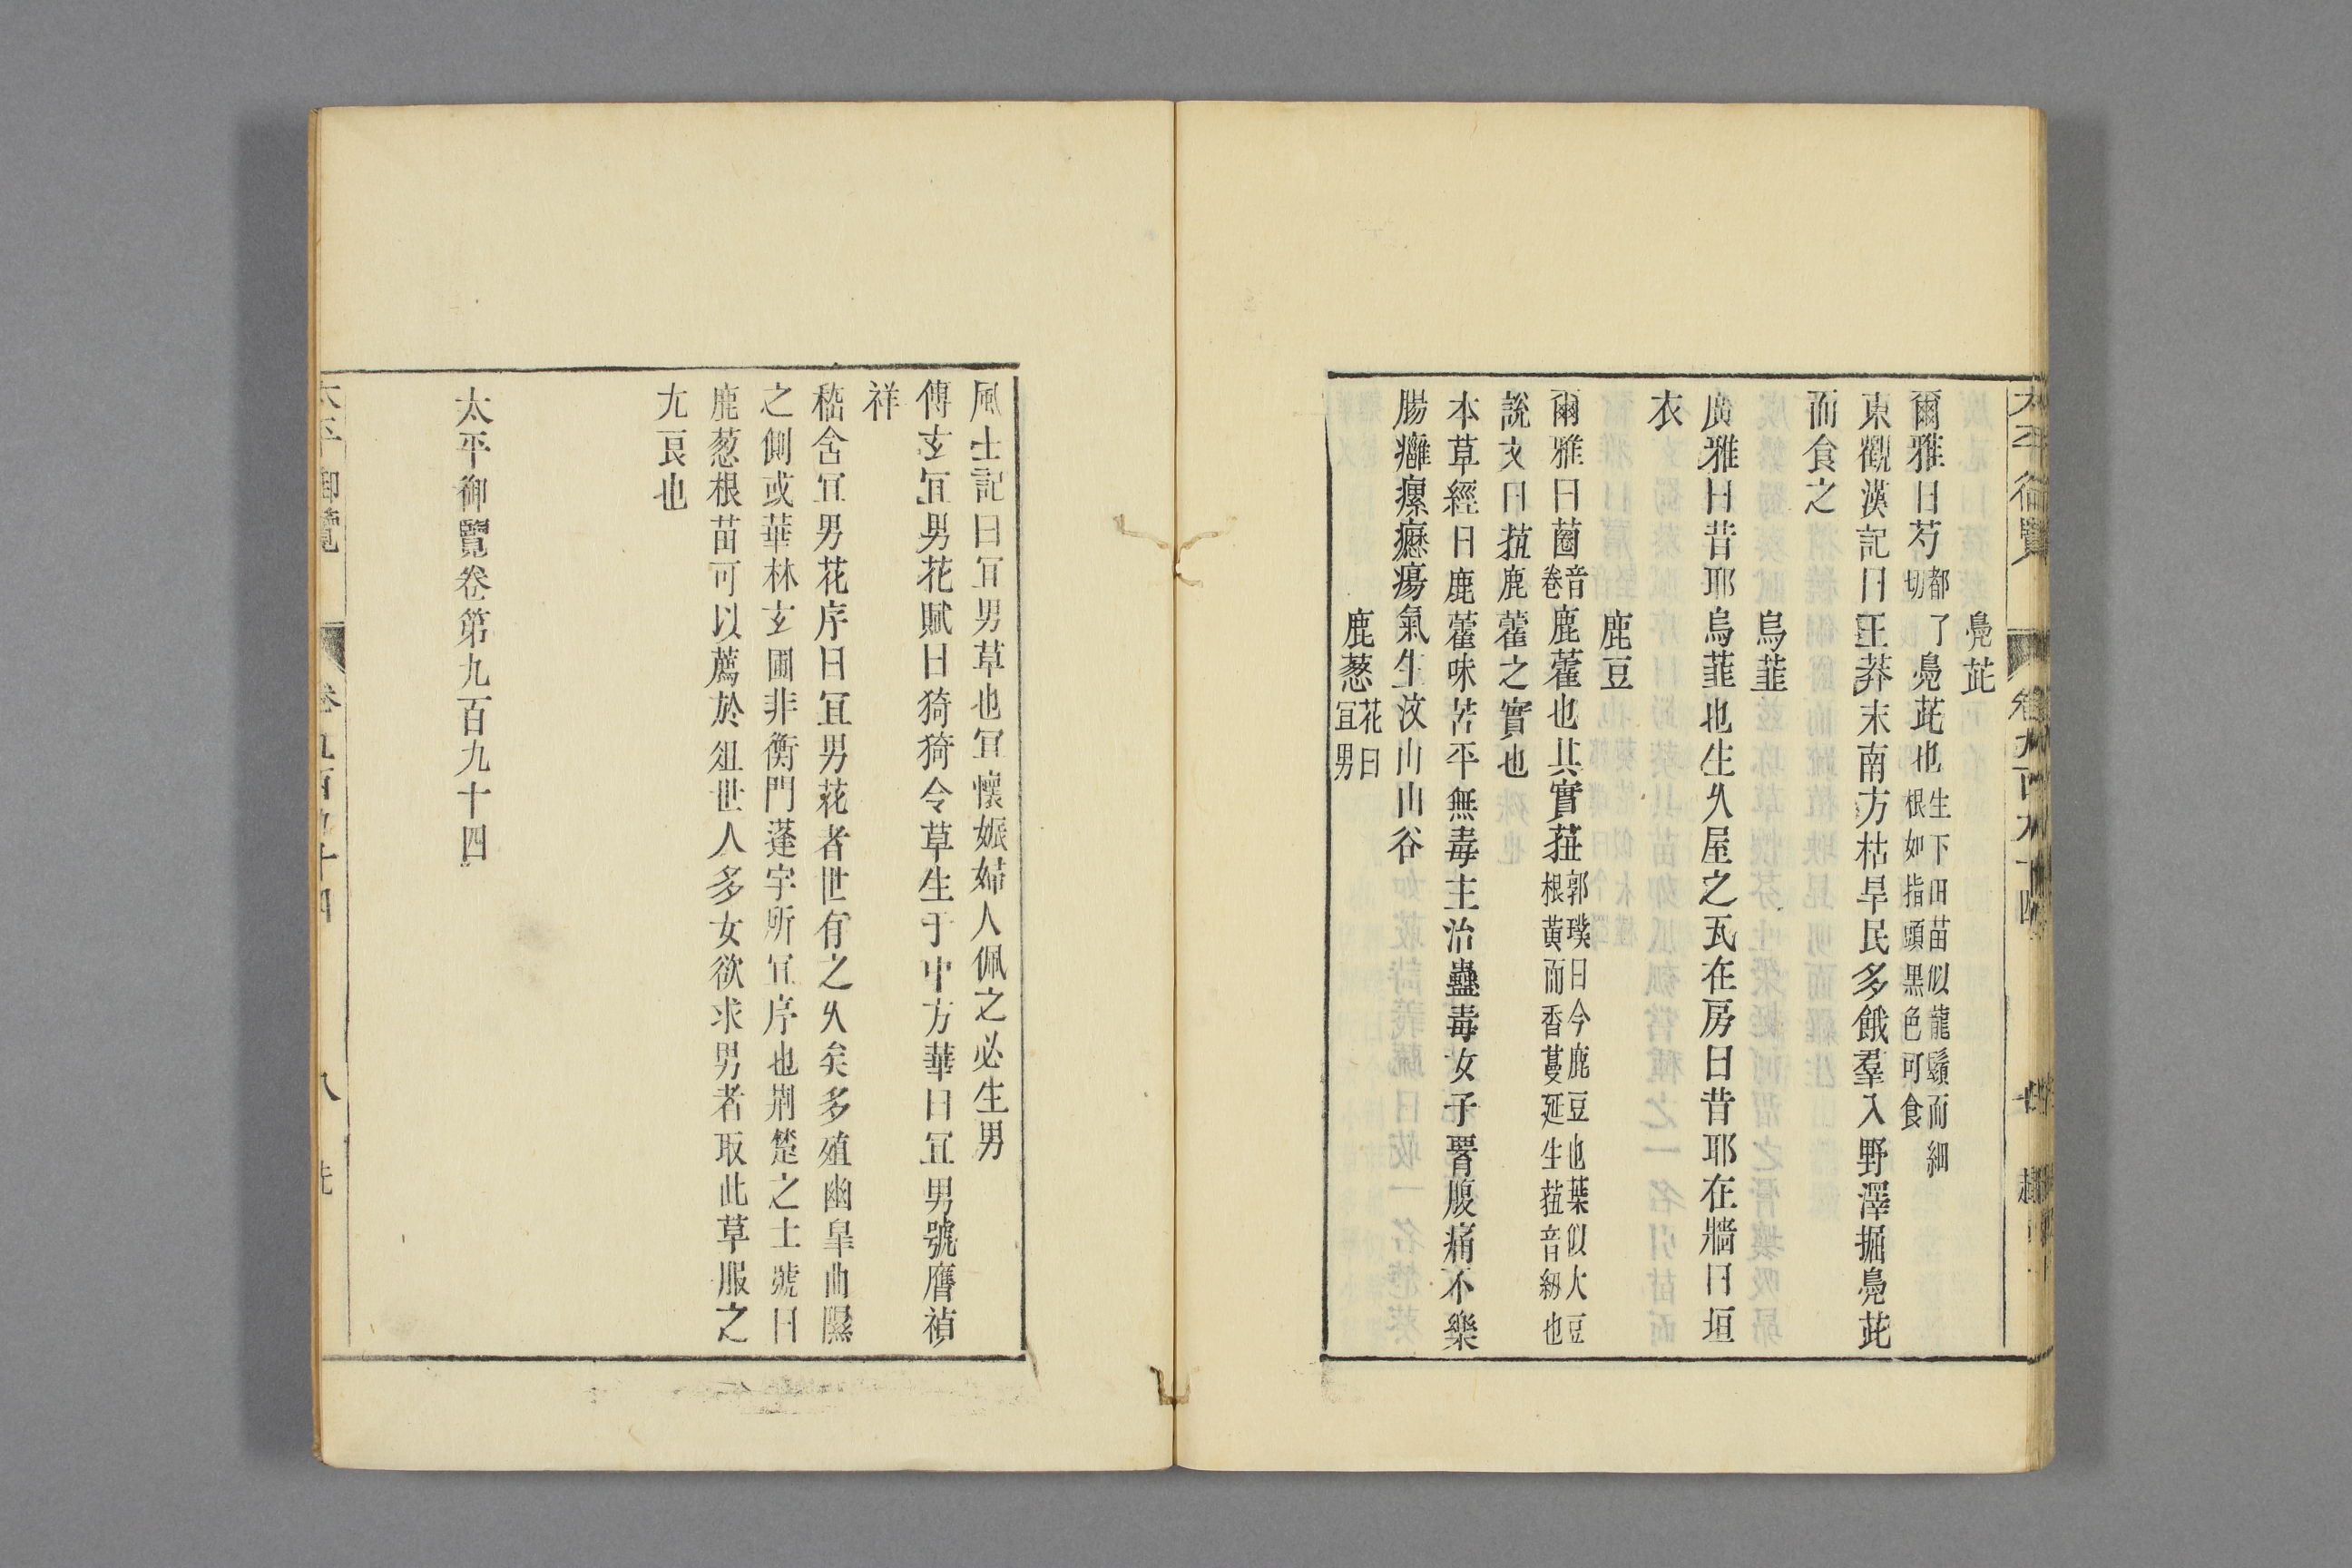 太平御覽 卷九百九十四
鳧茈
爾雅曰芍都了切鳧茈也生下田苗似龍鬚而細根如指頭黑色可食
東觀漢記曰王莽末南方枯旱民多餓羣入野澤掘鳧茈
而食之
烏韮
廣雅曰昔耶烏韮也生乆屋之瓦在房曰昔耶在牆曰垣
衣
鹿豆
爾雅曰蔨音卷鹿藿也其實莥郭璞曰今鹿豆也葉似大豆根黃而香蔓延生莥音紐也
說文曰莥鹿藿之實也
本草經曰鹿藿味苦平無毒主治蠱毒女子䐡腹痛不樂
腸癰瘰癧瘍氣生汶山山谷
鹿葱花曰宜男
風土記曰冝男草也冝懷娠婦人佩之必生男
傳玄冝男花賦曰猗猗令草生于中方華曰冝男號膺禎
祥
嵇含冝男花序曰冝男花者世有之乆矣多殖幽臯曲隰
之側或華林玄圃非衡門蓬宇所冝序也荆楚之士號曰
鹿葱根苗可以薦於俎世人多女欲求男者取此草服之
尢良也
太平御覽卷第九百九十四
太平御覽 卷九百九十四 八